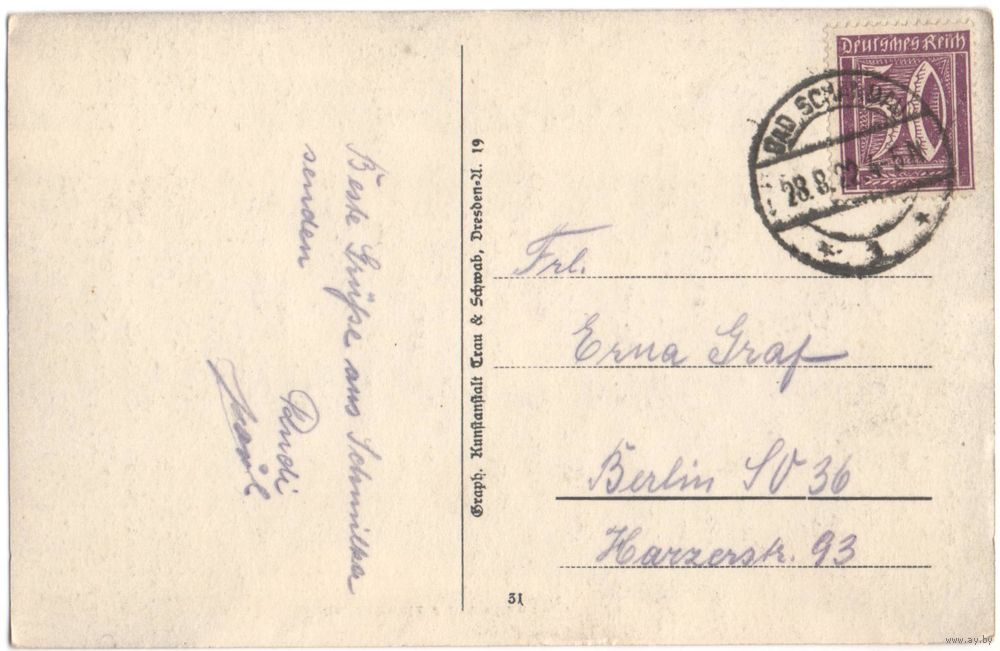 Beste Grüße aus Schmilka
senden
Rudi
Graph. Kunstanstalt Trau & Schwab, Dresden-A. 19
31
Deutsches Reich
50
BAD SCHANDAU
28.8.22. 4-5 N
* 1 *
Frl.
Erna Graf
Berlin SO 36
Harzerstr. 93
www.ay.by